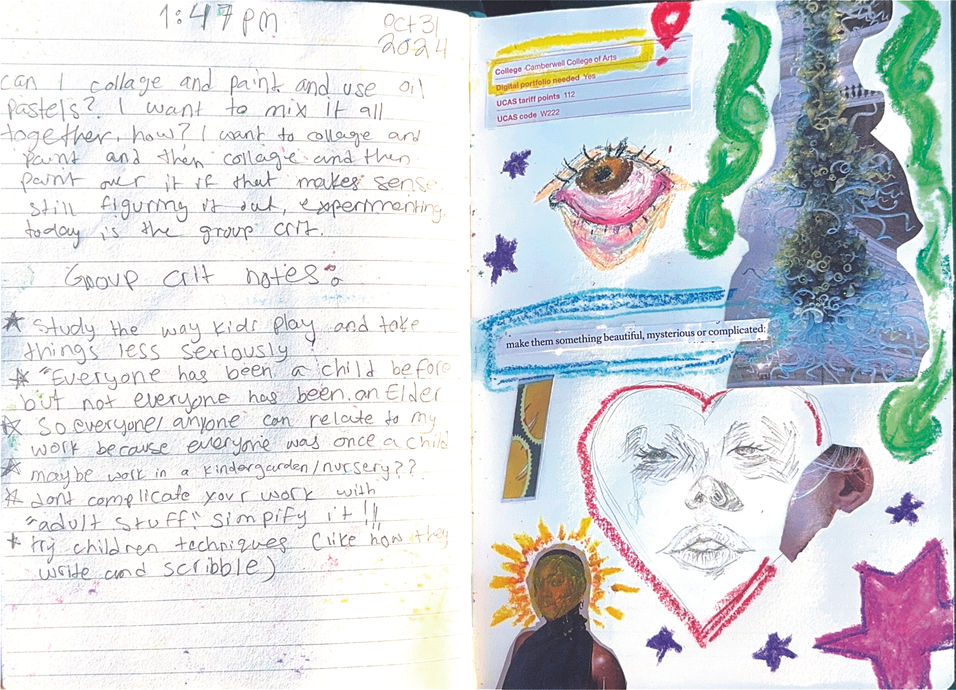 1:47 pm
Oct 31
2024
can I collage and paint and use oil
pastels? I want to mix it all
together, how? I want to collage and
paint and then collage and then
paint over it if that makes sense
still figuring it out, experimenting.
today is the group crit.
Group crit notes:
★ Study the way kids play and take
things less seriously
★ "Everyone has been a child before
but not everyone has been an Elder
★ so everyone/anyone can relate to my
work because everyone was once a child
★ maybe work in a kindergarden/nursery??
★ dont complicate your work with
"adult stuff" simpify it!!
★ try children techniques (like how they
write and scribble)
College Camberwell College of Arts
Digital portfolio needed Yes
UCAS tariff points 112
UCAS code W222
make them something beautiful, mysterious or complicated: